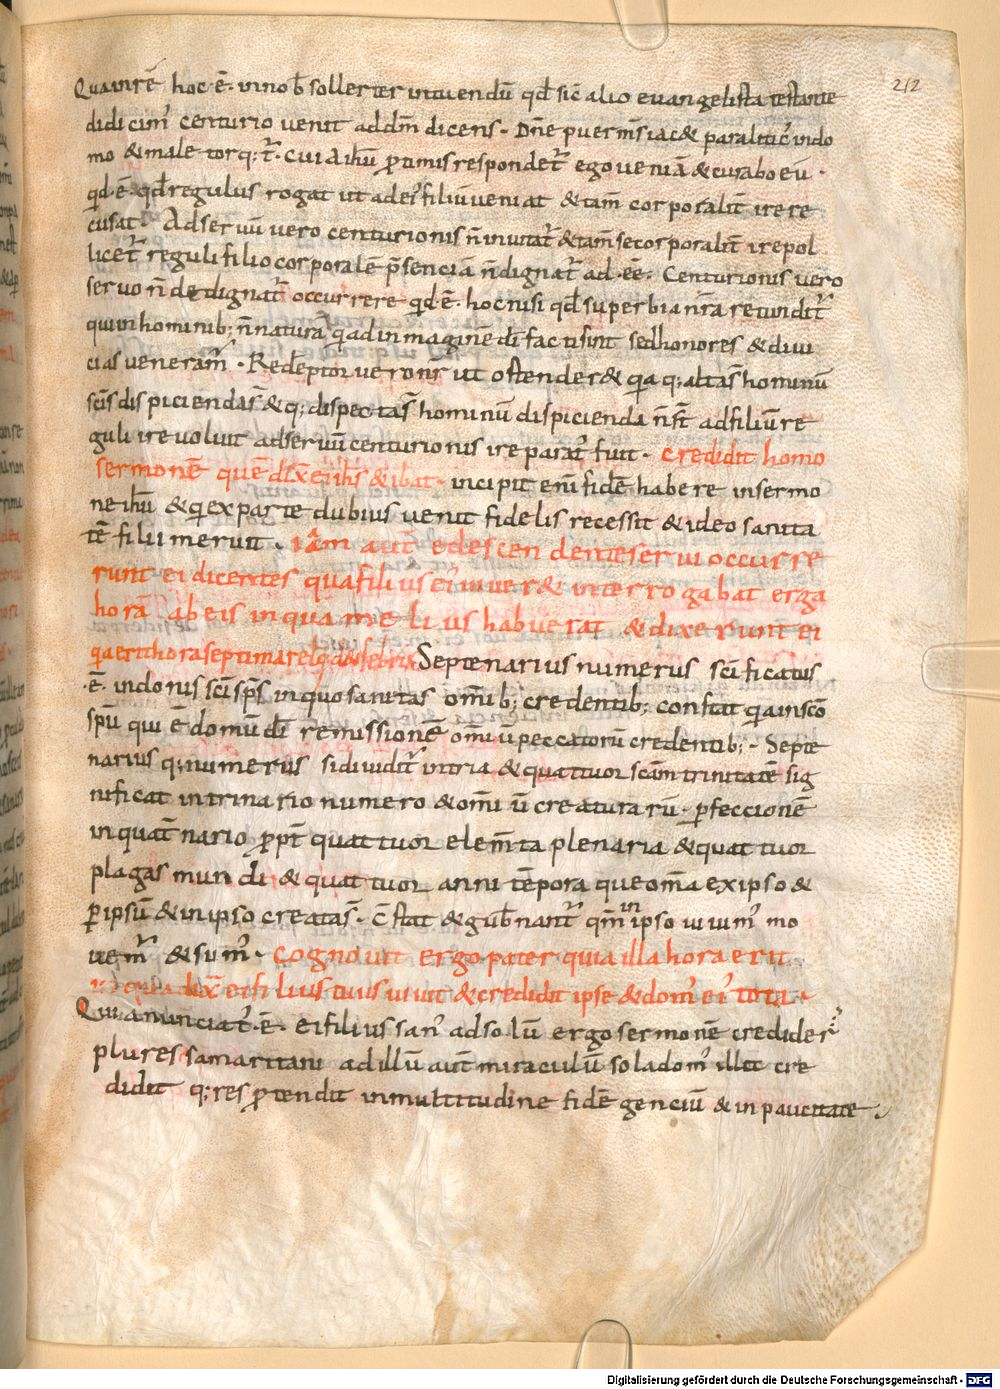 212
Qua in rē hoc ·ē· in nob̄ sollerter intuendū qd̄ sic̄ alio euangelista testante
didicim̄ centurio uenit ad dn̄m dicens · Dn̄e puer m̄s iac& paralitic' in do
mo & male torq;t̄ · Cui a ih̄u p̄timis respondet̄ ego ueniā & curabo eū ·
qd̄ ·ē· qd̄ regulus rogat ut ad ei' filiū ueniat & tam̄ corporalit̄ ire re
cusat · Ad seruū uero centurionis n̄ inuitat̄ & tam̄ se corporalit̄ ire pol
licet̄ reguli filio corporalē p̄senciā n̄ dignat̄ ad ·ēē· Centurionis uero
seruo n̄ dedignat̄ occurrere qd̄ ·ē· hoc nisi qd̄ superbia nr̄a retundit̄
qui in hominib; n̄ naturā qa ad imaginē dī facti sint sed honores & diui
cias ueneram̄ · Redēptor uero nr̄ ut ostender& qia q; alta s̄ hominū
sc̄is dispicienda s̄ & q; dispecta s̄ hominū dispicienda n̄ st̄ ad filiū re
guli ire noluit ad seruū centurionis ire parat' fuit · Credidit homo
sermonē quē dix̄ ei ih̄s & ibat · incipit eni fidē habere in sermo
ne ih̄u & qi ex parte dubius uenit fidelis recessit & ideo sanita
tē filii meruit · iām aut̄ eo descendente serui occurre
runt ei dicentes qua filius ei' uiuer& interrogabat erga
horā ab eis in qua melius habuerat & dixerunt ei
qia eri hora septima reliqd eū febris · Septenarius numerus sc̄ificatus
·ē· in donis sc̄i sp̄s in quo sanitas om̄ib; credentib; constat qia in sc̄o
spū qui ·ē· donū dī remissionē om̄iū peccatorū credentib; · Septe
narius q; numerus si diuidit̄ in tria & quattuor scām trinitatē sig
nificat in trinario numero & om̄iū creaturarū · pfeccionē
in quat̄nario ppt̄ quattuor elem̄ta plenaria & quattuor
plagas mundi & quattuor anni tēpora que om̄a ex ipso &
p ipsū & in ipso creata s̄ · c̄stat & gub̄nant̄ qm̄ in ipso uiuim̄ mo
uem̄ & sum̄ · Cognouit ergo pater quia illa hora erit
in qua dix̄ ei filius tuus uiuit & credidit ipse & dom' ei' tota ·
Qui anunciat̄ ·ē· ei filius san' ad solū ergo sermonē credider̄
plures samaritani ad illū aut̄ miraculū sola dom' illic cre
didit q; res p̄tendit in multitudine fidē genciū & in paucitate
Digitalisierung gefördert durch die Deutsche Forschungsgemeinschaft - DFG